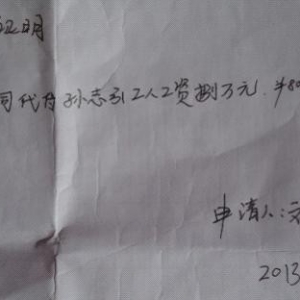 证明
司代付孙志引工人工资捌万元.¥80
申请人:文
2013